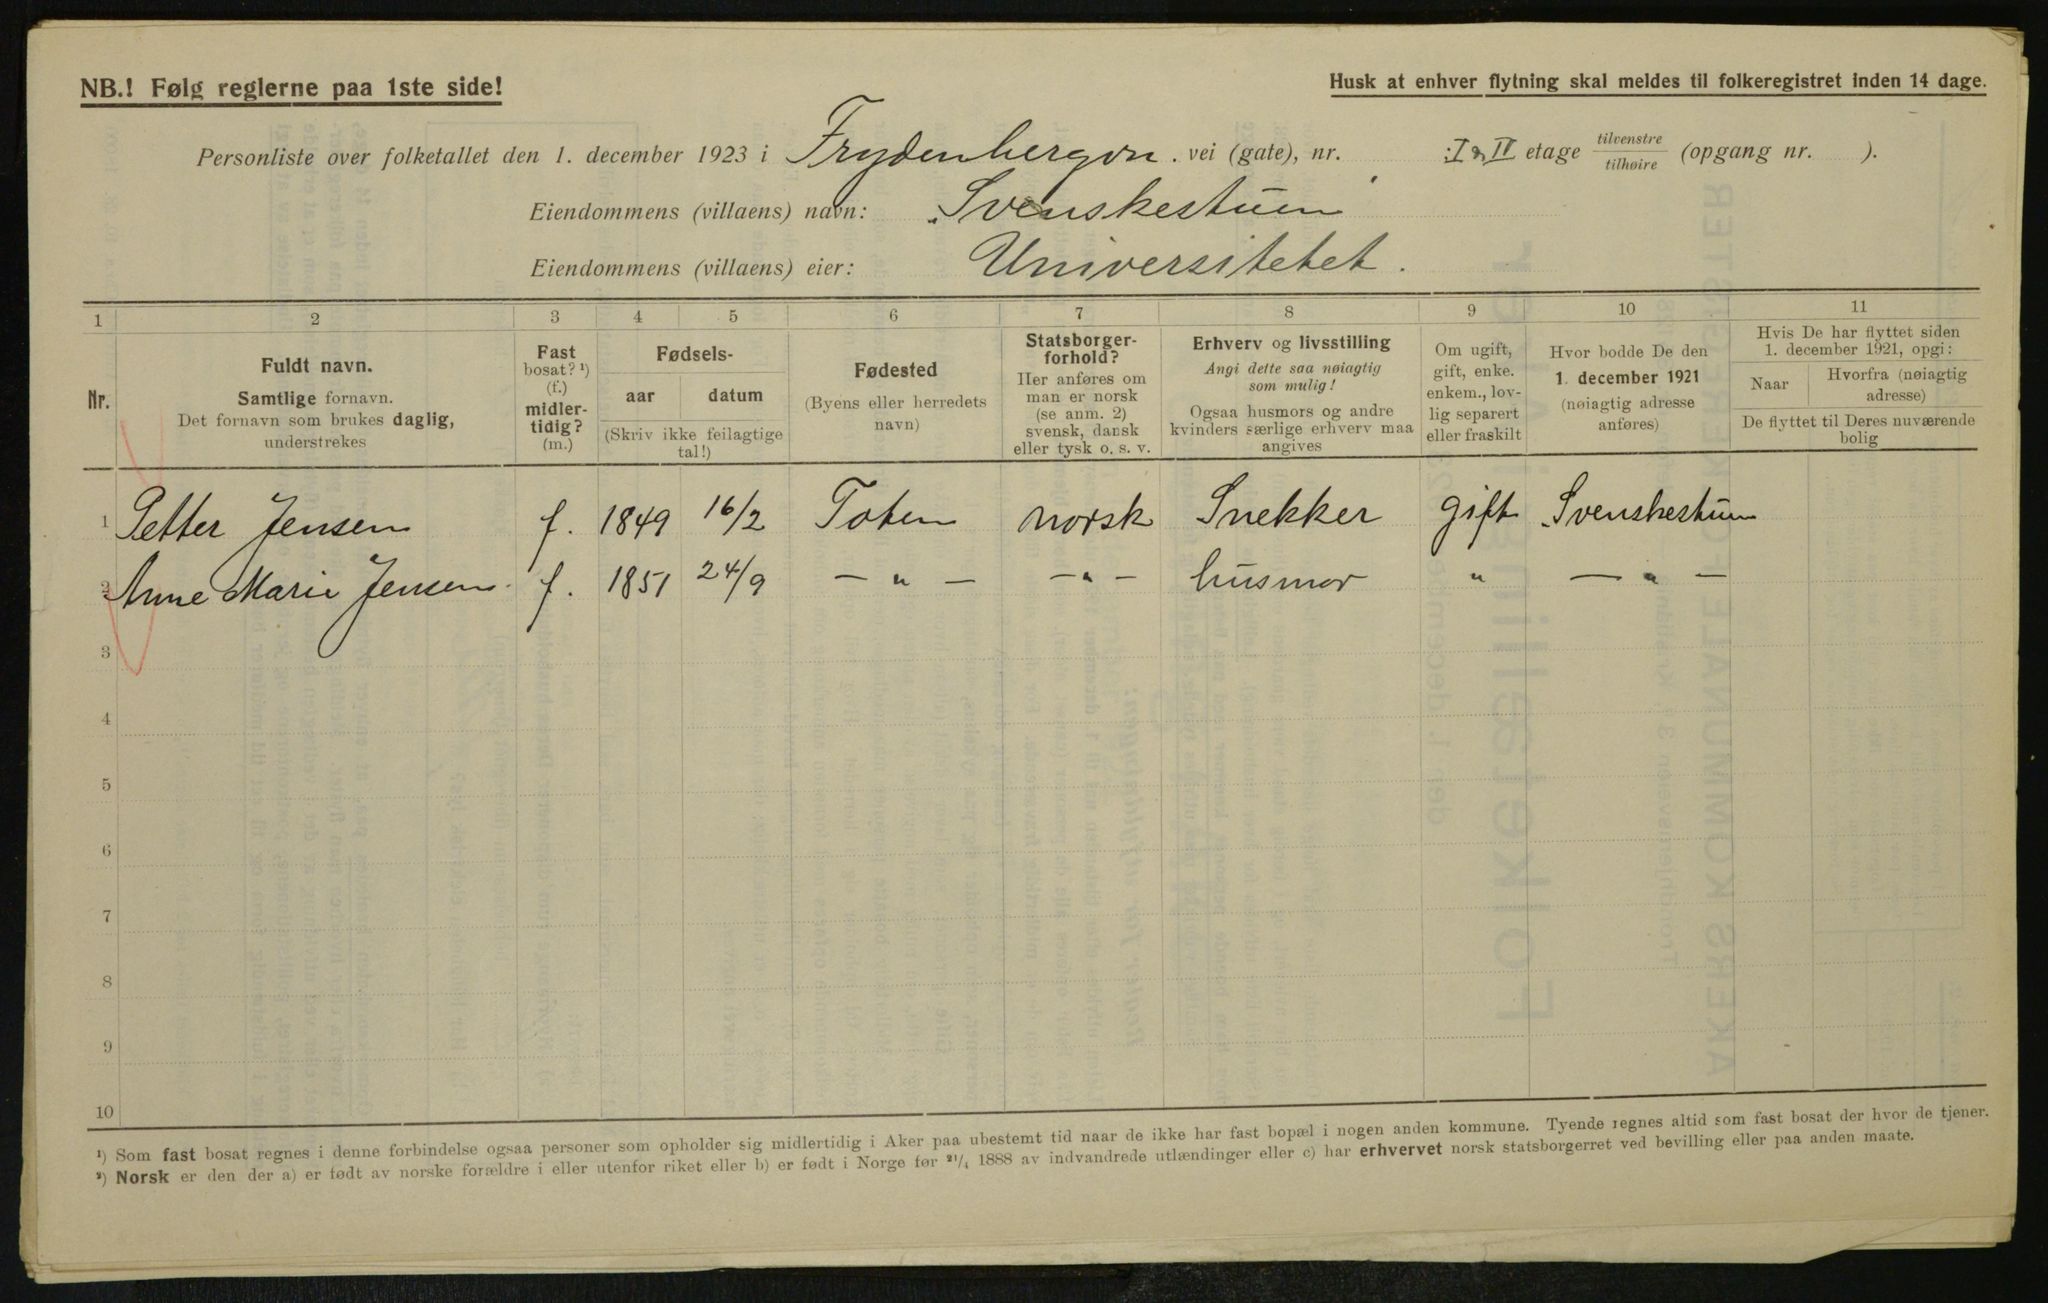 NB.! Følg reglerne paa 1ste side!
Husk at enhver flytning skal meldes til folkeregistret inden 14 dage.
Personliste over folketallet den 1. december 1923 i Frydenbergvn. vei (gate), nr. : I & II etage tilvenstre / tilhøire (opgang nr. ).
Eiendommens (villaens) navn: Svenskestuen
Eiendommens (villaens) eier: Universitetet.
1 2 3 4 5 6 7 8 9 10 11
Nr.
Fuldt navn.
Samtlige fornavn.
Det fornavn som brukes daglig,
understrekes
Fast
bosat? ¹)
(f.)
midler-
tidig?
(m.)
Fødsels-
aar datum
(Skriv ikke feilagtige
tal!)
Fødested
(Byens eller herredets
navn)
Statsborger-
forhold?
Her anføres om
man er norsk
(se anm. 2)
svensk, dansk
eller tysk o. s. v.
Erhverv og livsstilling
Angi dette saa nøiagtig
som mulig!
Ogsaa husmors og andre
kvinders særlige erhverv maa
angives
Om ugift,
gift, enke.
enkem., lov-
lig separert
eller fraskilt
Hvor bodde De den
1. december 1921
(nøiagtig adresse
anføres)
Hvis De har flyttet siden
1. december 1921, opgi:
Naar
Hvorfra (nøiagtig
adresse)
De flyttet til Deres nuværende
bolig
1 Petter Jensen f. 1849 16/2 Toten norsk Snekker gift Svenskestuen
2 Anne Marie Jensen. f. 1851 24/9 — " — — " — husmor " — " —
3
4
5
6
7
8
9
10
¹) Som fast bosat regnes i denne forbindelse ogsaa personer som opholder sig midlertidig i Aker paa ubestemt tid naar de ikke har fast bopæl i nogen anden kommune. Tyende regnes altid som fast bosat der hvor de tjener.
²) Norsk er den der a) er født av norske forældre i eller utenfor riket eller b) er født i Norge før ²¹/₄ 1888 av indvandrede utlændinger eller c) har erhvervet norsk statsborgerret ved bevilling eller paa anden maate.